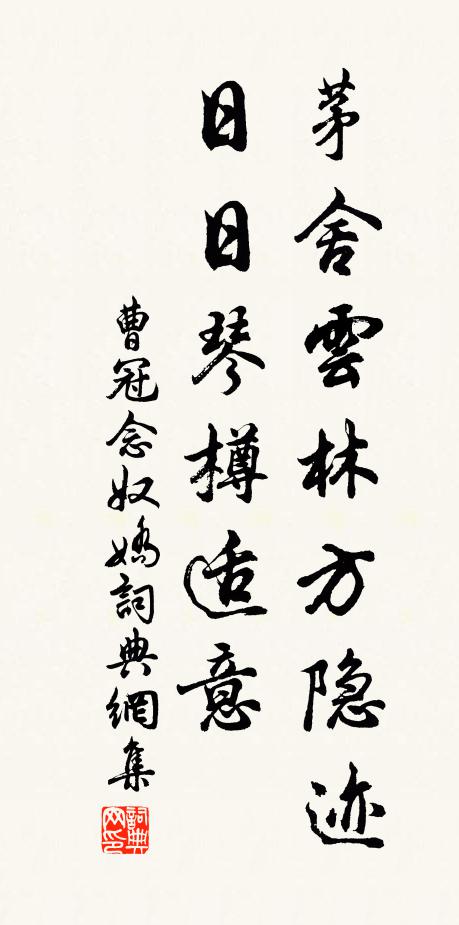 茅舍雲林方隐迹
日日琴樽适意
曹冠念奴嬌詞典網集
詞典
网印